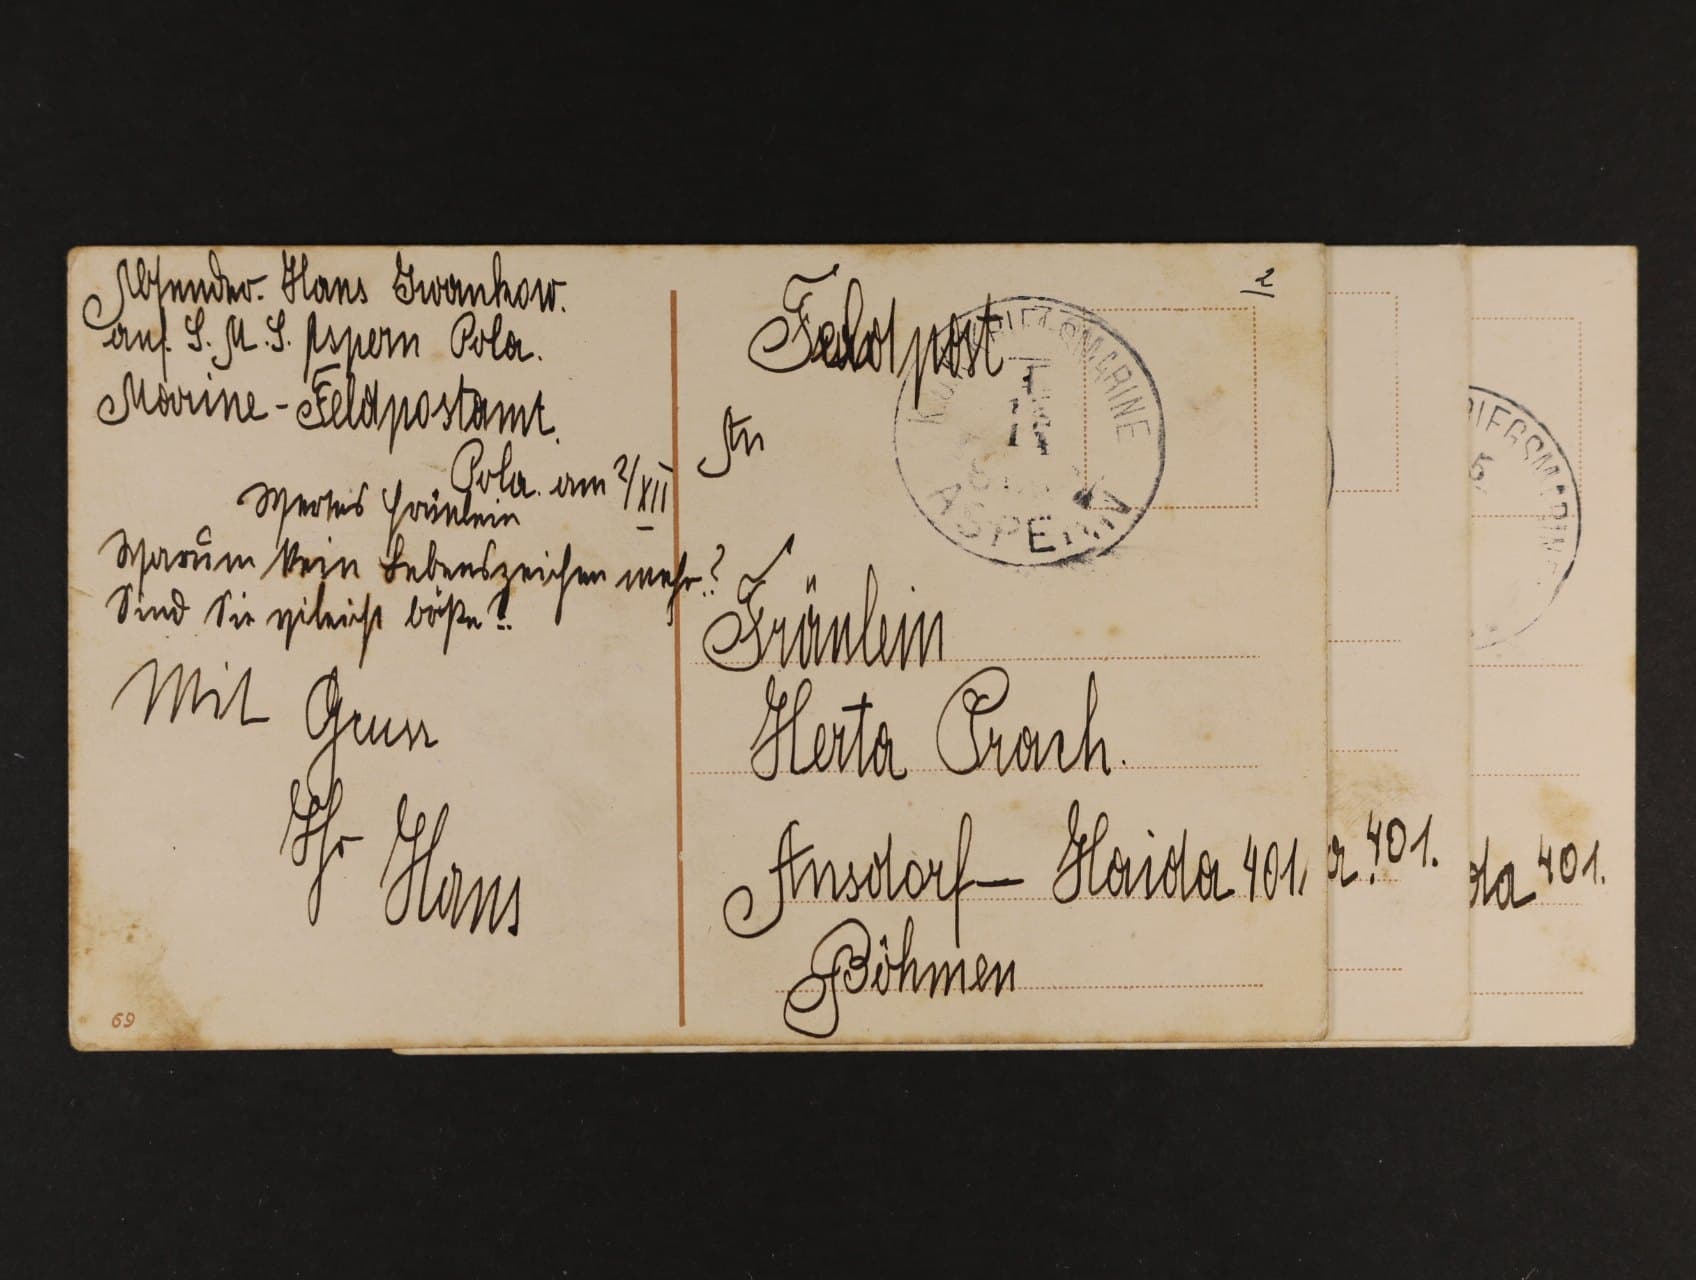 Absender. Hans Iwankow.
auf. S. M. S. Aspern Pola.
Marine-Feldpostamt.
Pola. am 2/XII
Wertes Fräulein
Warum kein Lebenszeichen mehr?
Sind Sie vileicht böße?
Mit Gruss
Ihr Hans
69
2
Feldpost
K.u.K. KRIEGSMARINE
ASPERN
An
Fräulein
Herta Prach.
Arnsdorf - Haida 401.
Böhmen
a 401.
RIEGSMARINE
5
da 401.